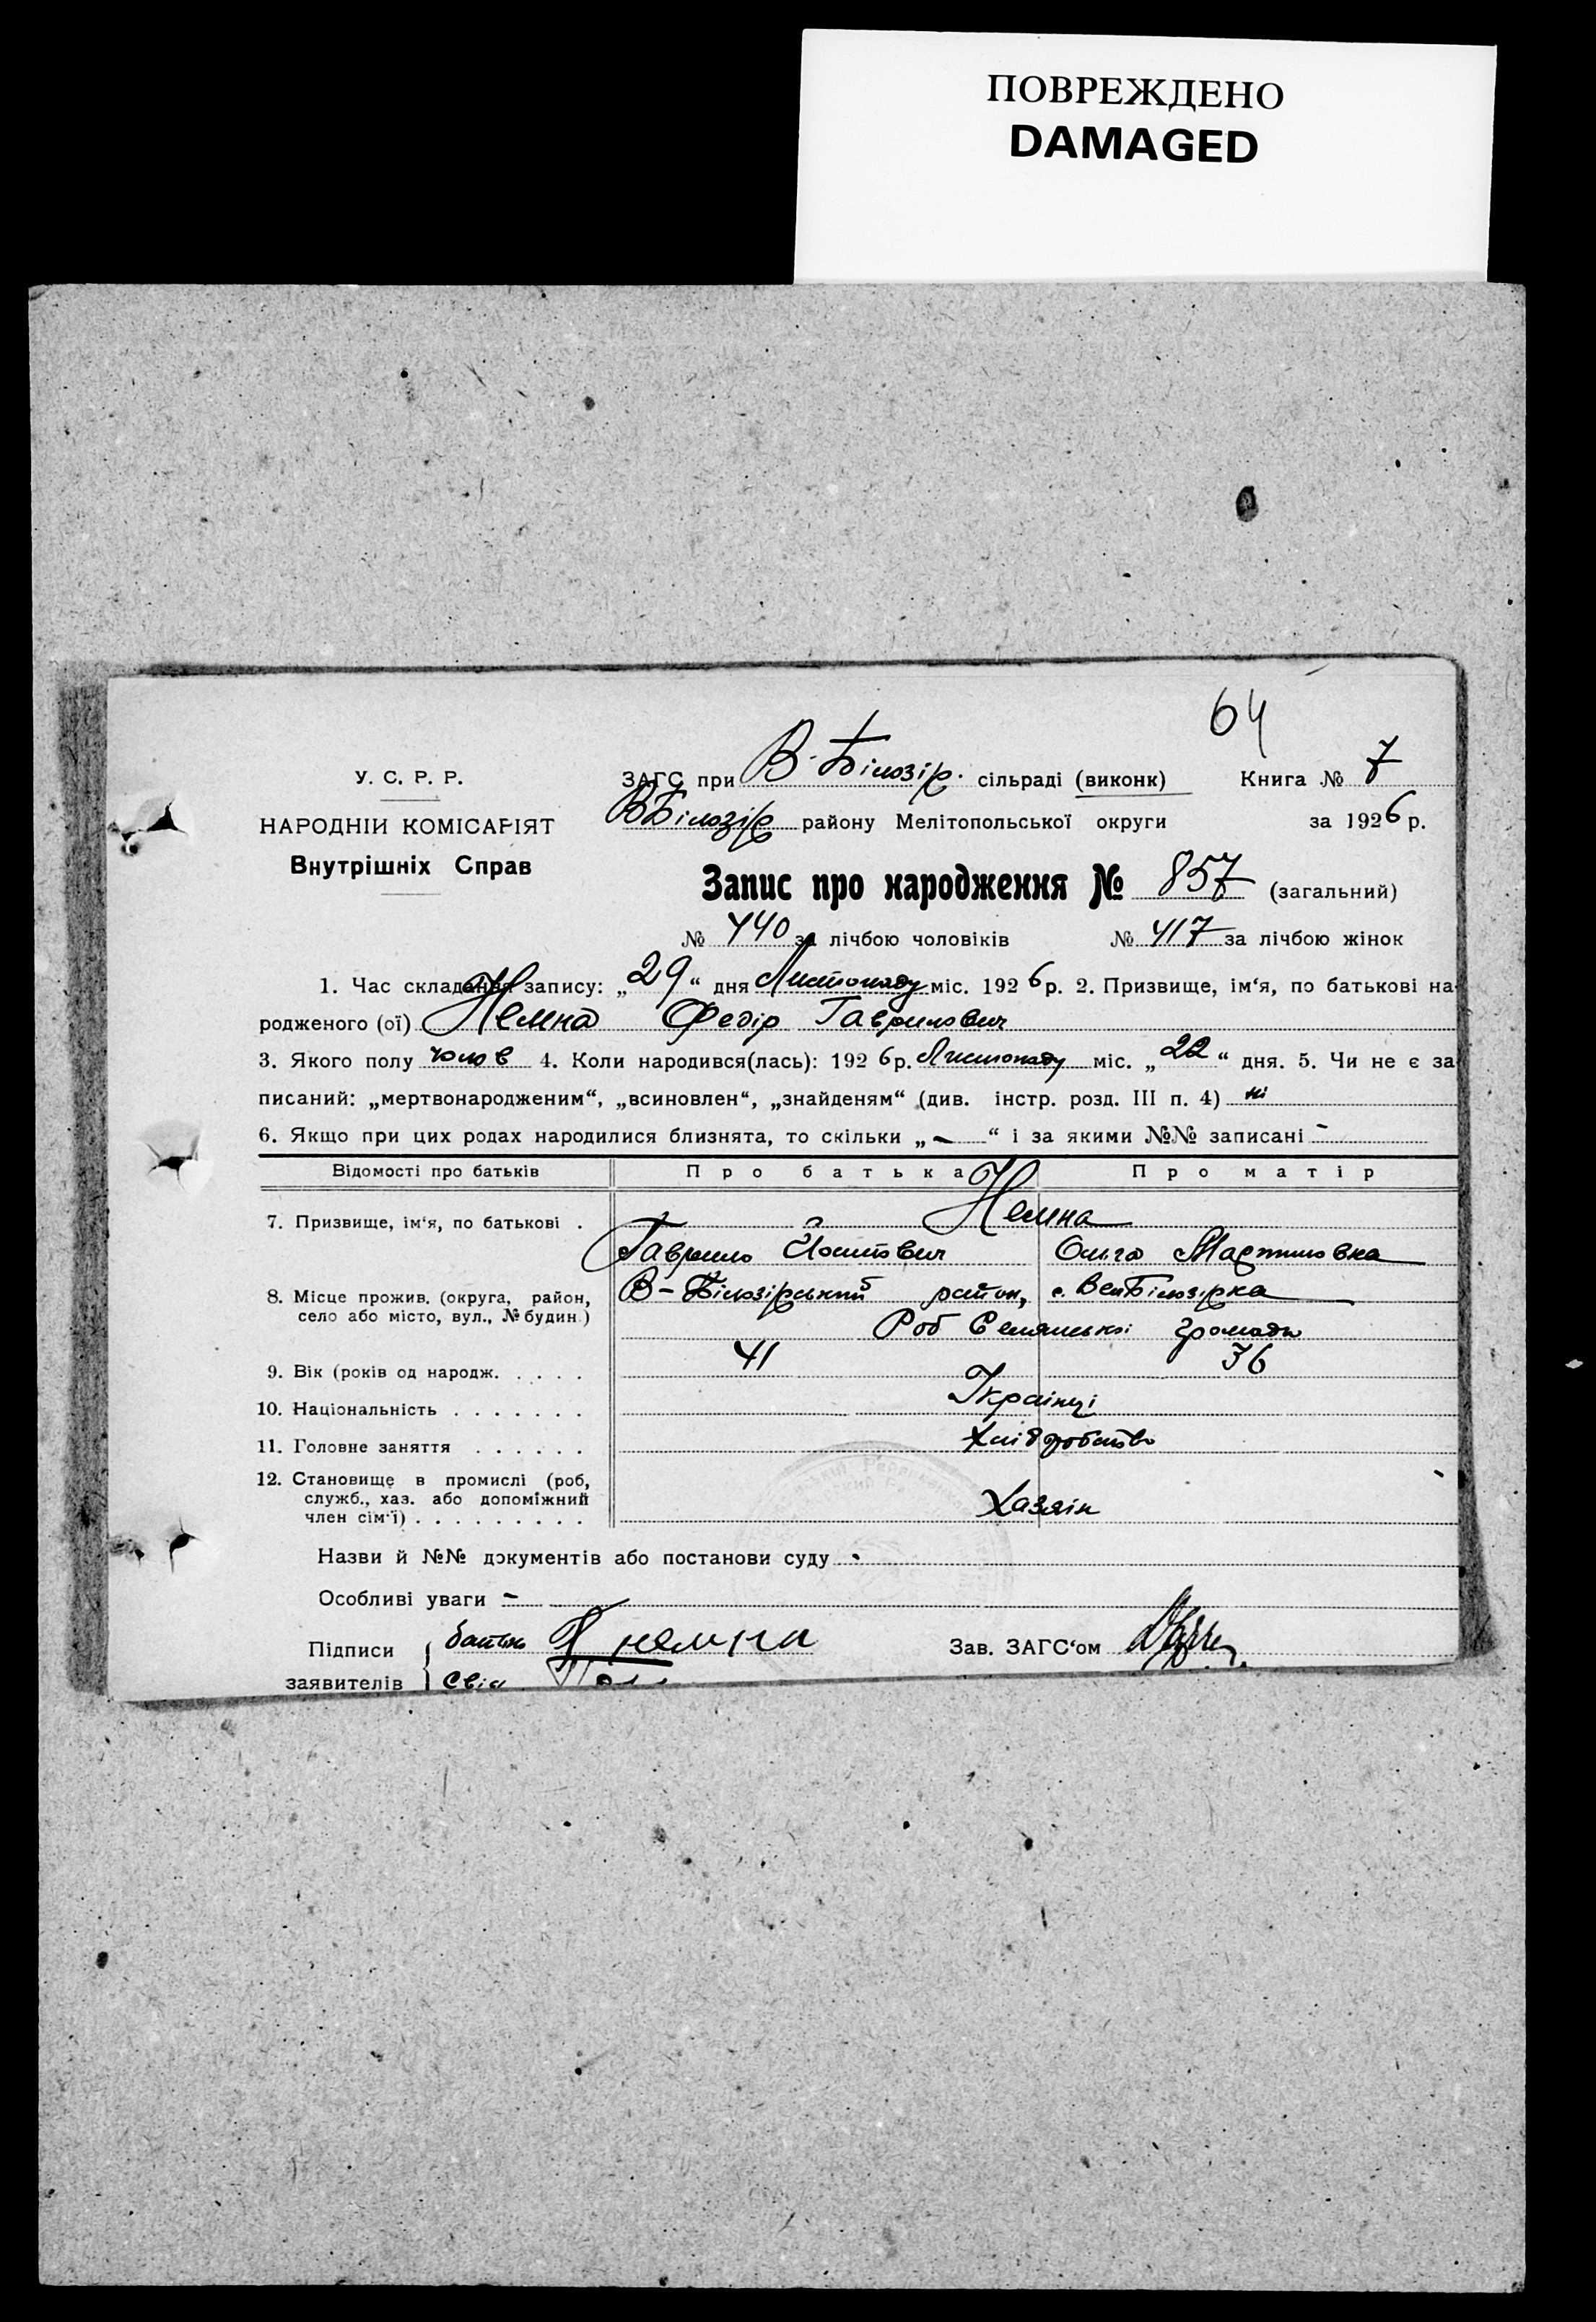 ПОВРЕЖДЕНО
DAMAGED
64
У. С. Р. Р.
ЗАГС при В-Білозір. сільраді (виконк) Книга № 7
НАРОДНІЙ КОМІСАРІЯТ
ВБілозір району Мелітопольської округи за 1926 р.
Внутрішніх Справ
Запис про народження № 857 (загальний)
№ 440 за лічбою чоловіків № 417 за лічбою жінок
1. Час складання запису: „29“ дня Листопаду міс. 1926 р. 2. Призвище, ім‘я, по батькові на-
родженого (ої) Немна Федір Гаврилович
3. Якого полу чолов 4. Коли народився(лась): 1926 р. Листопаду міс. „22“ дня. 5. Чи не є за-
писаний: „мертвонародженим“, „всиновлен“, „знайденям“ (див. інстр. розд. III п. 4) ні
6. Якщо при цих родах народилися близнята, то скільки „-“ і за якими №№ записані -
Відомості про батьків Про батька Про матір
7. Призвище, ім‘я, по батькові . Немна
Гаврило Йосипович Ольга Мартиновна
8. Місце прожив. (округа, район, В-Білозірський район, с. ВелБілозірка
село або місто, вул., № будин.)
Роб Селянської громади
9. Вік (років од народж. . . . . 41 36
10. Національність . . . . . . . Українці
11. Головне заняття . . . . . . Хліборобство
12. Становище в промислі (роб,
служб., хаз. або допоміжний Хазяін
член сім‘ї) . . . . . . . . .
Назви й №№ документів або постанови суду -
Особливі уваги -
Підписи батько Г Немна Зав. ЗАГС‘ом
заявителів